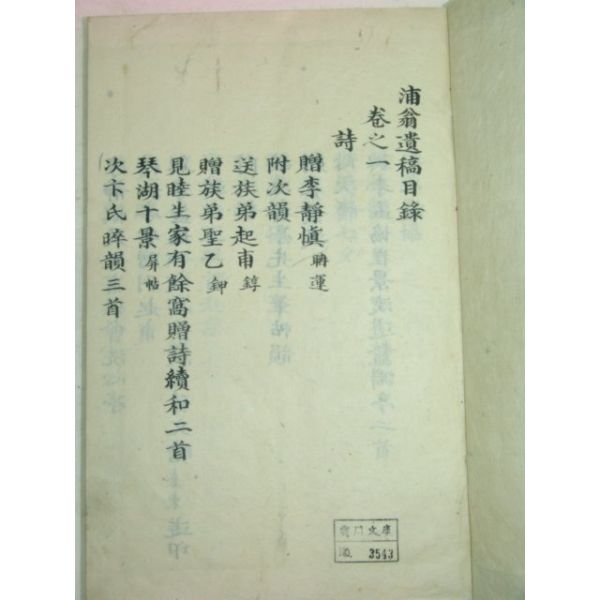 浦翁遺稿目錄
卷之一
詩
贈李靜愼
附次韻
送族弟起甫 錞
贈族弟聖乙 鉀
見睦生家有餘窩贈詩續和二首
琴湖十景 屛帖
次卞氏晬韻三首
文庫
NO. 3543